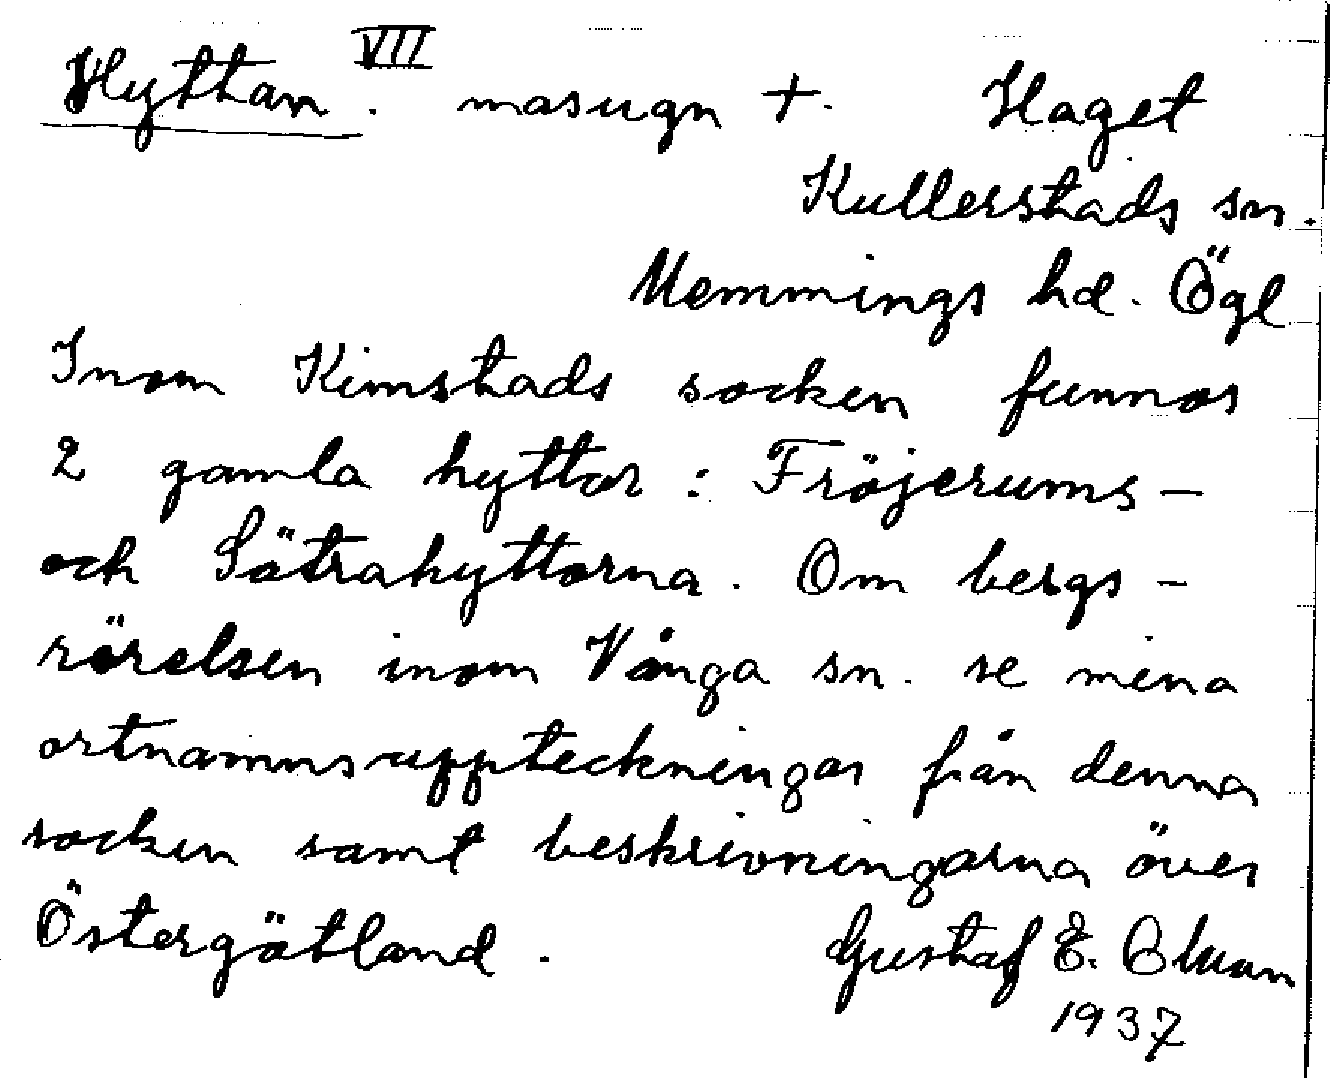 Hyttan. VII masugn +. Haget
Kullerstads sn.
Memmings hd. Ögl
Inom Kimstads socken funnos
2 gamla hyttor: Fröjerums-
och Sätrahyttorna. Om bergs-
rörelsen inom Vånga sn. se mina
ortnamnsuppteckningar från denna
socken samt beskrivningarna över
Östergötland. Gustaf E.
1937